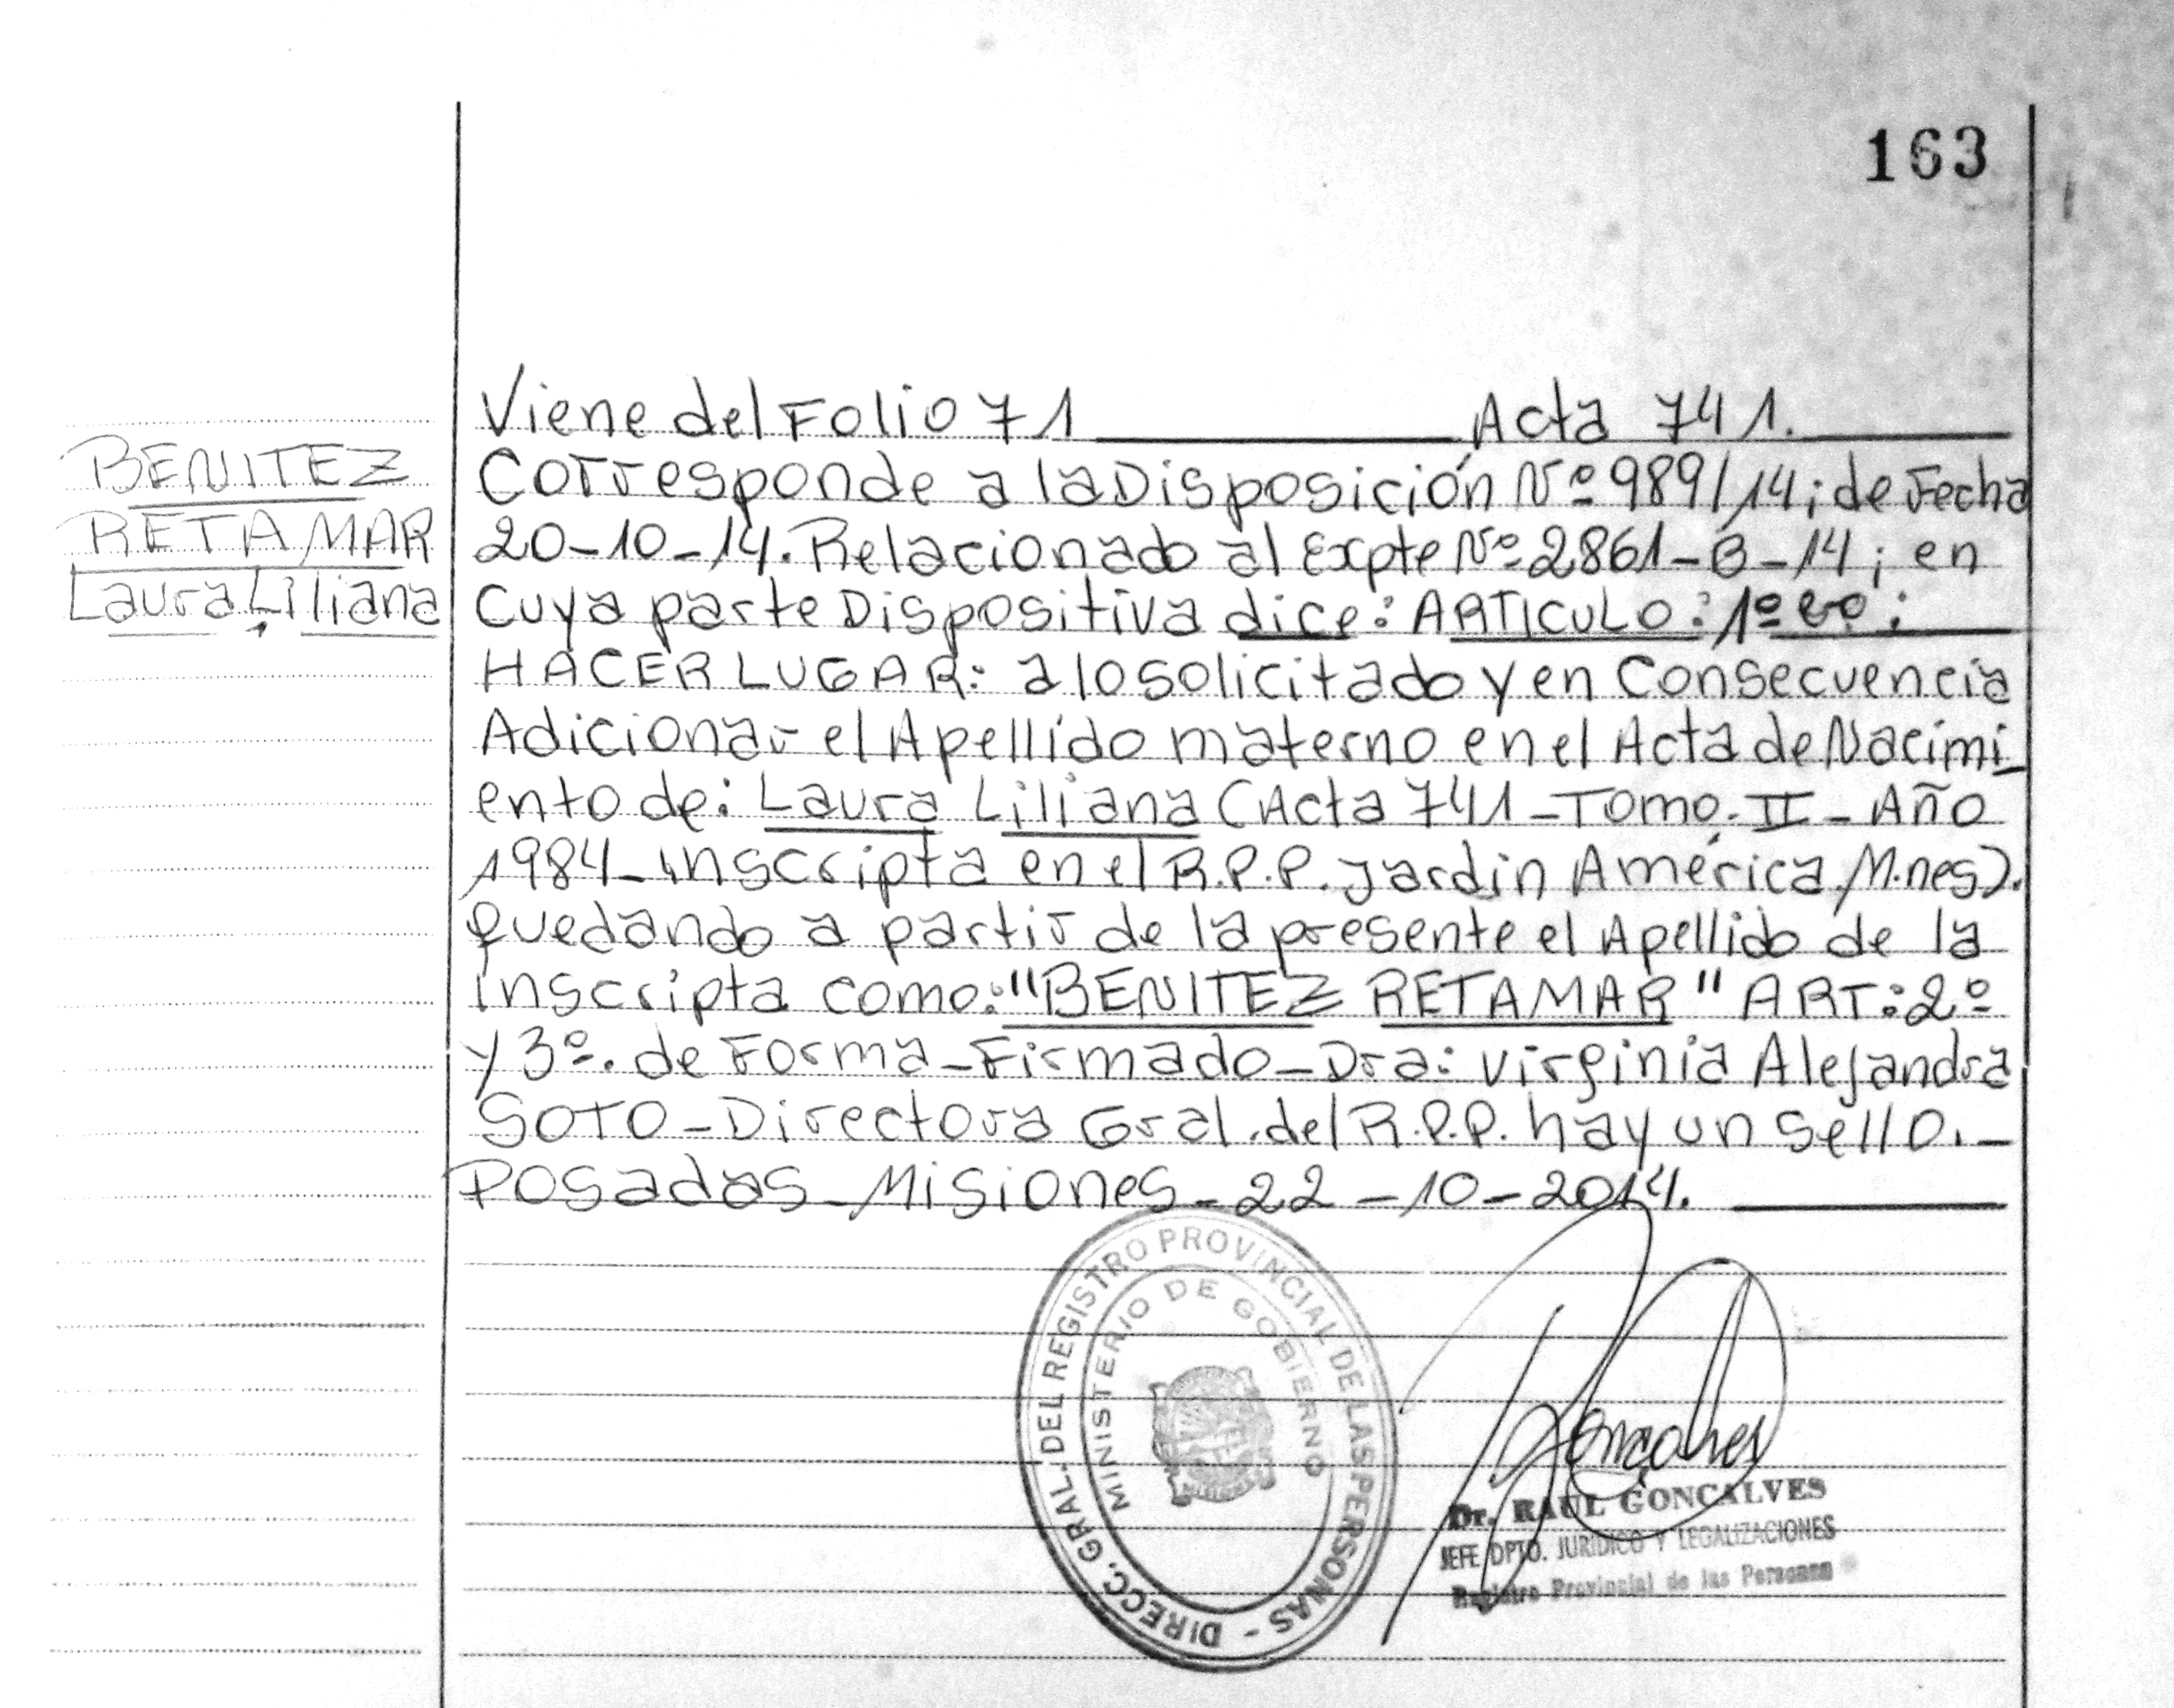 163
BENITEZ
RETAMAR
Laura Liliana
Viene del Folio 71 Acta 741.
Corresponde a la Disposición Nº 989/14; de Fecha
20-10-14. Relacionado al Expte Nº 2861-B-14; en
Cuya parte Dispositiva dice: ARTICULO: 1º
HACER LUGAR: a lo solicitado y en Consecuencia
Adicionar el Apellido materno en el Acta de Nacimi_
ento de: Laura Liliana (Acta 741 - Tomo. II - Año
1984 - inscripta en el R.P.P. Jardín América. M.nes).
quedando a partir de la presente el Apellido de la
inscripta como: "BENITEZ RETAMAR" ART: 2º
y 3º. de Forma - Firmado - Dra: Virginia Alejandra
SOTO - Directora Gral. del R.P.P. hay un sello. -
Posadas - Misiones - 22 - 10 - 2014.
DIRECC. GRAL. DEL REGISTRO PROVINCIAL DE LAS PERSONAS -
MINISTERIO DE GOBIERNO
Goncalves
Dr. RAUL GONCALVES
JEFE DPTO. JURIDICO Y LEGALIZACIONES
Registro Provincial de las Personas